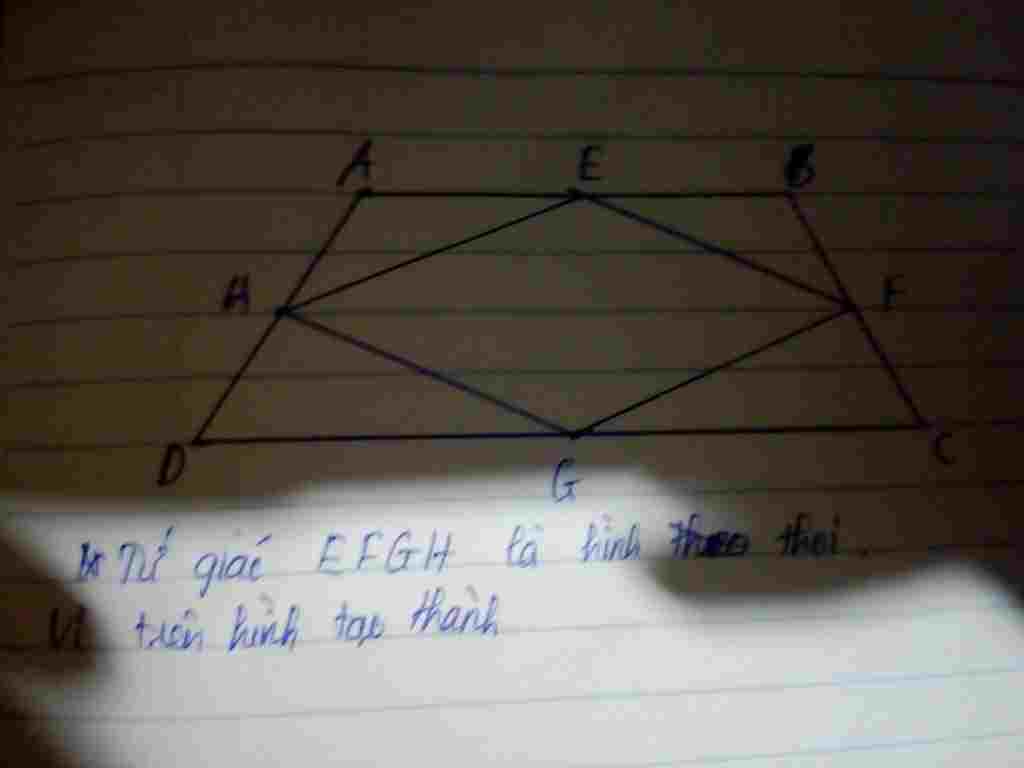 A E B
H F
D G C
Tứ giác EFGH là hình thoi.
Vì trên hình tạo thành